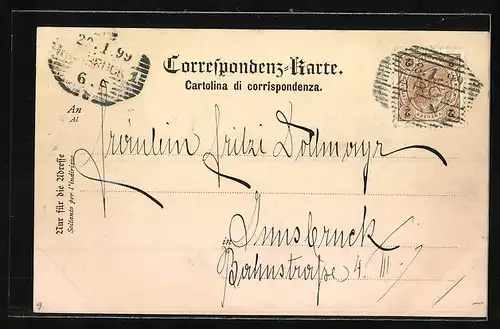 20.1.99
6
1
Correspondenz-Karte.
Cartolina di corrispondenza.
An
Al
Fräulein Fritzi Dollmayr
Nur für die Adresse
Soltanto per l'indirizzo
in Innsbruck
Bahnstraße 4. III.